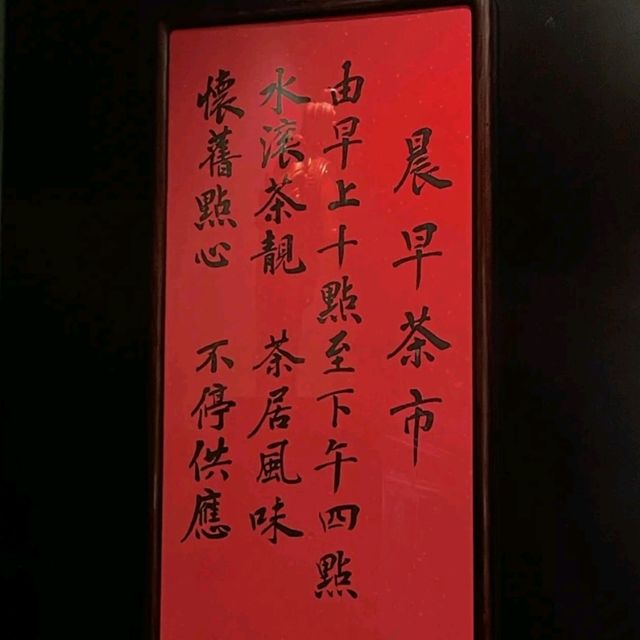 晨早茶市
由早上十點至下午四點
水滾茶靚 茶居風味
懷舊點心 不停供應